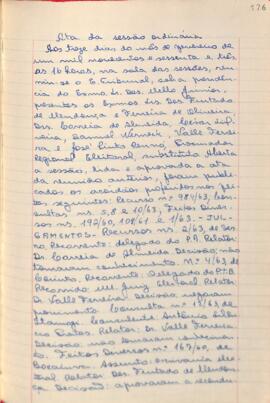 126
Ata da sessão ordinária
Aos treze dias do mês de fevereiro de
um mil novecentos e sessenta e três
às 16 horas, na sala das sessões, reu-
niu-se o Tribunal, sob a presidên-
cia do Exmo. Sr. Des. Mello Junior.
presentes os Exmos. Srs. Des. Furtado
de Mendonça e Ferreira de Oliveira,
Drs. Correia de Almeida, Cesar Sil-
veira, Samuel Werneck, Valle Ferrei-
ra e José Pinto Renno, Procurador
Regional Eleitoral, substituto. Aberta
a sessão, lida e aprovada a ata
da reunião anterior, foram publi-
cados os acórdãos proferidos nos fei-
tos seguintes: recurso n.º 984/63, con-
sultas ns. 5, 8 e 10/63, Feitos Diver-
sos ns. 192/60, 108/61 e 1/63. - JUL-
GAMENTOS - Recursos ns. 2/63, de Ser-
ro. Recorrente: delegado do P.R. Relator
Dr. Correia de Almeida. Decisão: não
tomaram conhecimento. N.º 4/63, de
Recorrente: Delegado do P.T.B.
Recorrido MM. Juiz Eleitoral. Relator
Dr. Valle Ferreira. Decisão: negaram
provimento. Consulta n.º 13/63 de
Itamogi. Consulente: Antônio
Relator: Dr. Valle Ferreira
Decisão: não tomaram conhecimen-
to. Feitos Diversos n.º 167/60, de
Bocaiuva. Assunto:
Relator Des. Furtado de Mendon-
ça. Decisão: aprovaram a